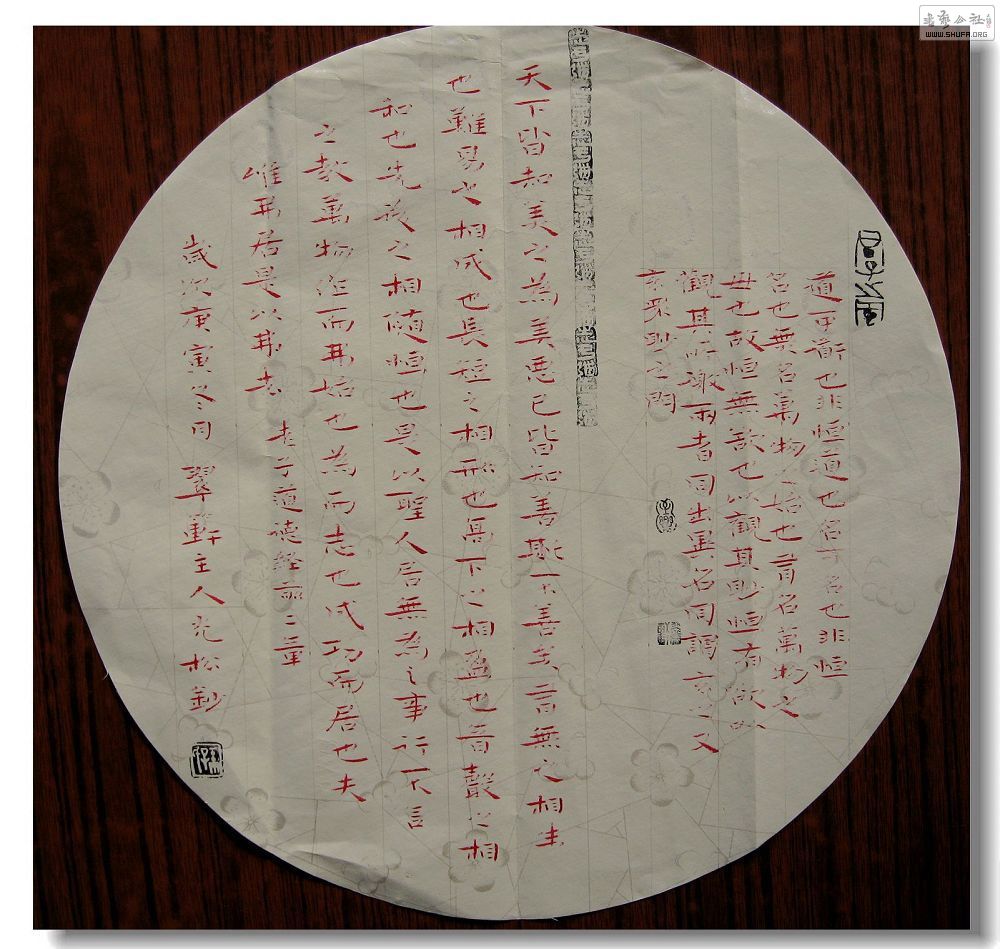 道可道也非恒道也名可名也非恒
名也無名萬物之始也有名萬物之
母也故恒無欲也以觀其眇恒有欲以
觀其所噭兩者同出異名同謂玄之又
玄眾眇之門
天下皆知美之為美惡已皆知善斯不善矣言無之相生
也難易之相成也長短之相刑也高下之相盈也音聲之相
和也先後之相隨恒也是以聖人居無為之事行不言
之教萬物作而弗始也為而志也成功而居也夫
唯弗居是以弗去 老子道德經前二章
歲次庚寅冬月 翠主人光松鈔
书艺公社
WWW.SHUFA.ORG